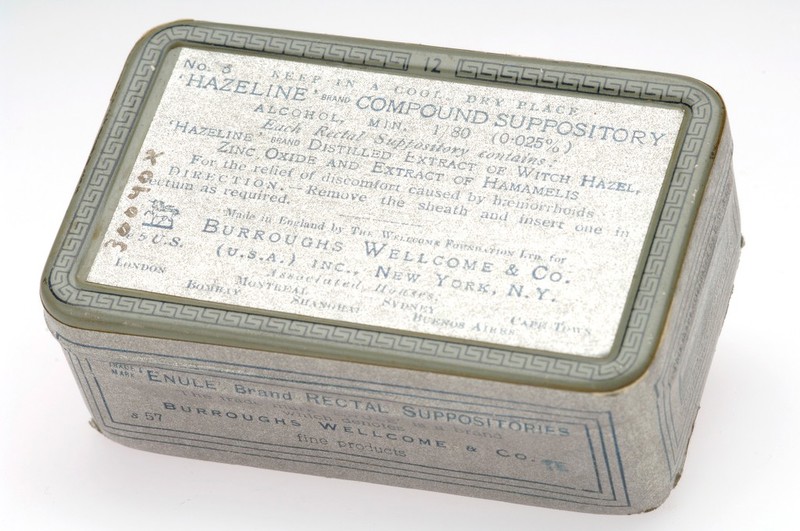 12
No. 3 KEEP IN A COOL, DRY PLACE
'HAZELINE' BRAND COMPOUND SUPPOSITORY
ALCOHOL, MIN. 1/80 (0·025%)
Each Rectal Suppository contains:
'HAZELINE' BRAND DISTILLED EXTRACT OF WITCH HAZEL,
ZINC OXIDE AND EXTRACT OF HAMAMELIS
For the relief of discomfort caused by hæmorrhoids
DIRECTION.—Remove the sheath and insert one in
rectum as required.
Made in England by THE WELLCOME FOUNDATION LTD. for
BURROUGHS WELLCOME & CO.
(U.S.A.) INC., NEW YORK, N.Y.
Associated Houses:
LONDON MONTREAL SYDNEY CAPE TOWN
BOMBAY SHANGHAI BUENOS AIRES
U.S.
TRADE MARK 'ENULE' Brand RECTAL SUPPOSITORIES
which denotes a brand
BURROUGHS WELLCOME & CO.
fine products